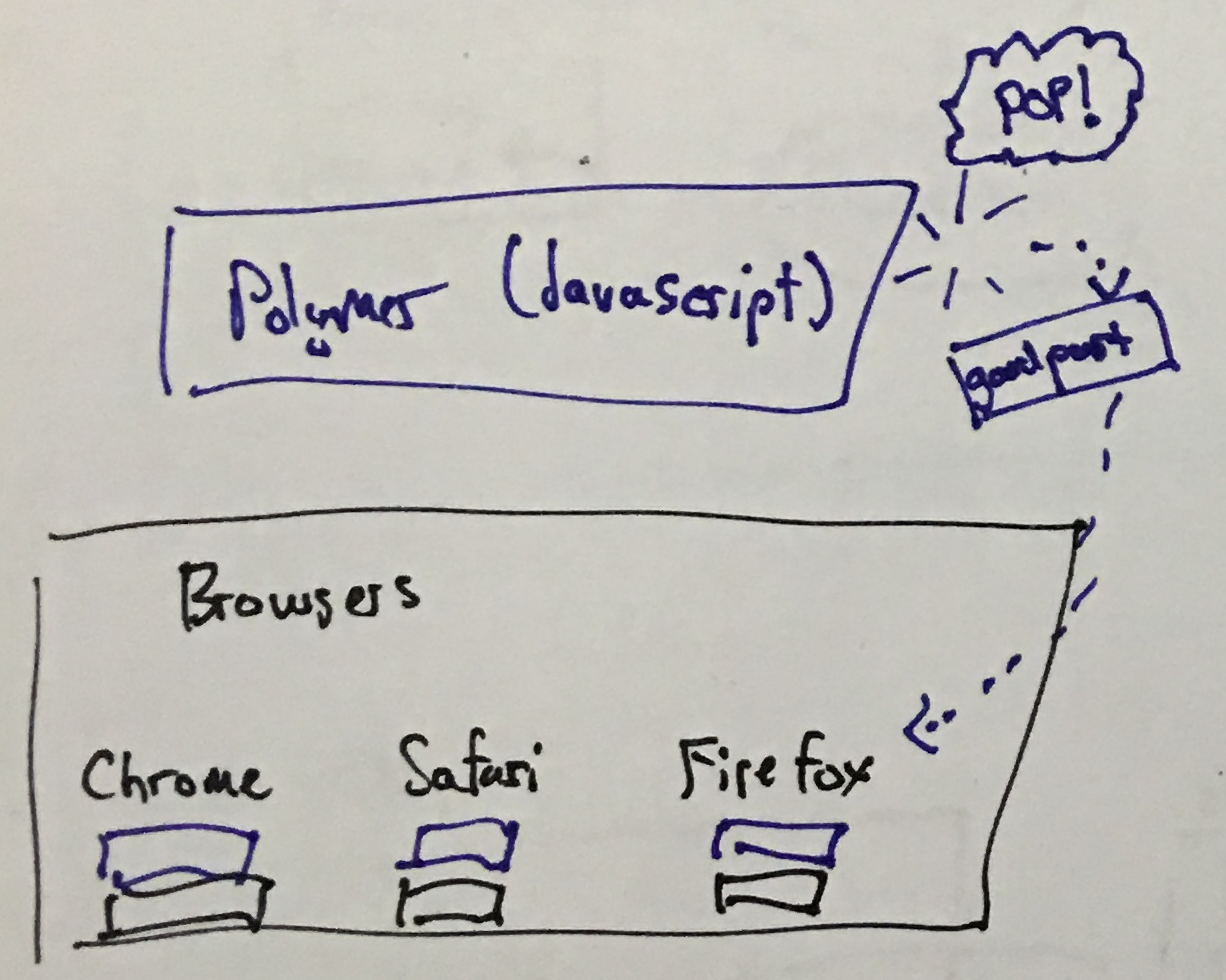 POP!
Polymer (Javascript)
good part
Browsers
Chrome Safari Firefox